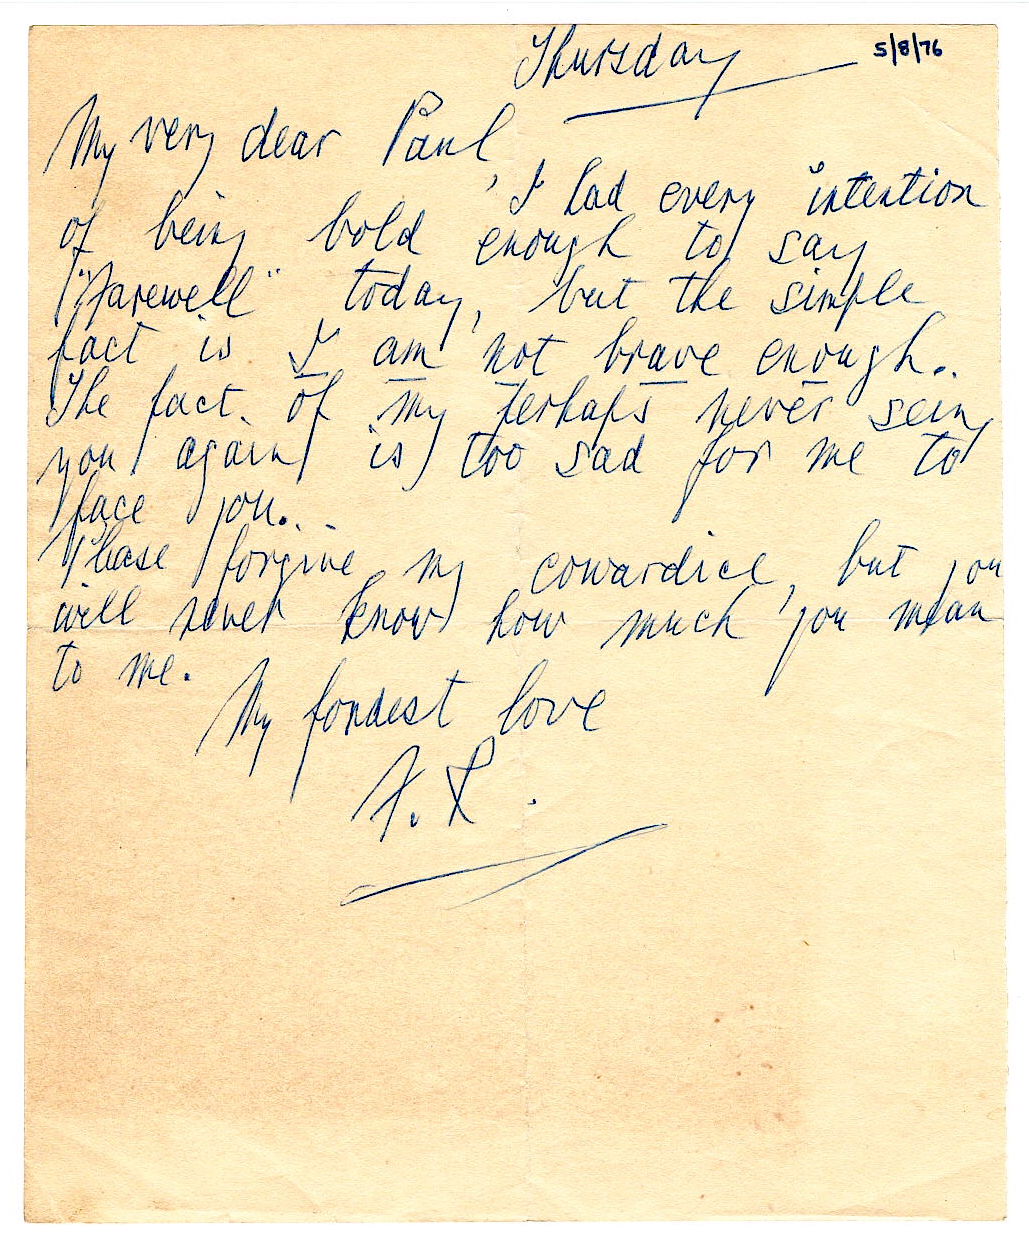 Thursday 5/8/76
My very dear Paul,
I had every intention
of being bold enough to say
"Farewell" today, but the simple
fact is I am not brave enough..
The fact. of my perhaps never sein
you again is too sad for me to
face you...
Please forgive my cowardice, but you
will never know how much you mean
to me.
My fondest love